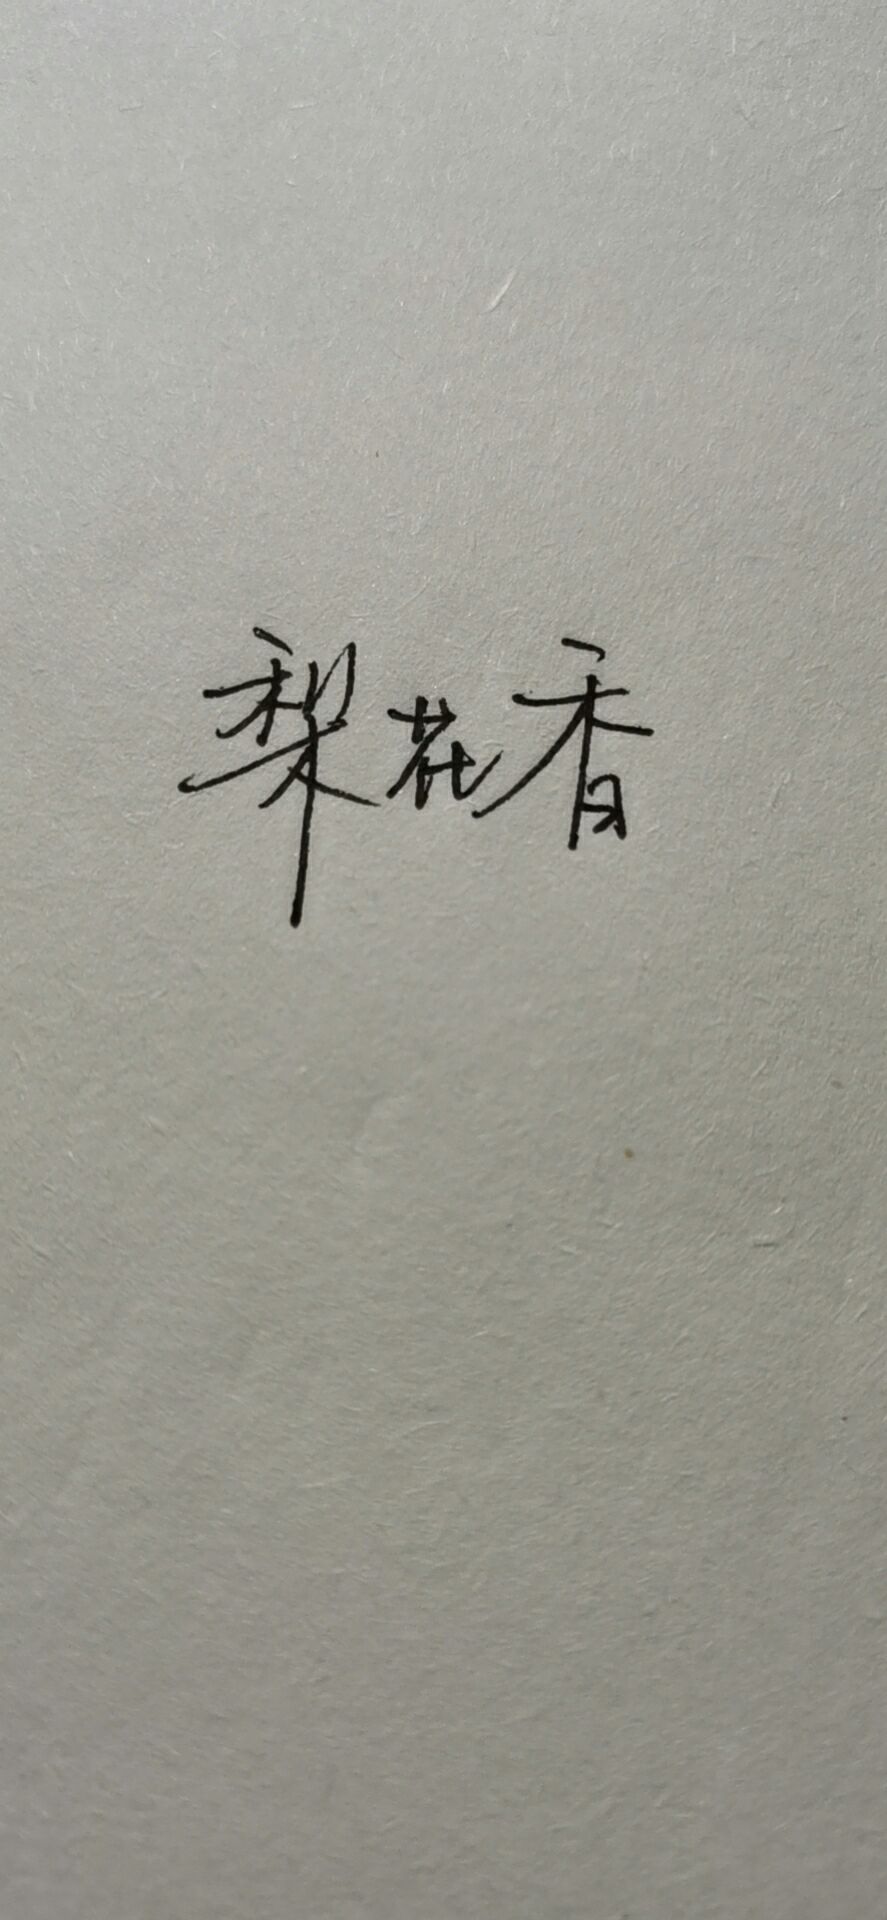 梨花香